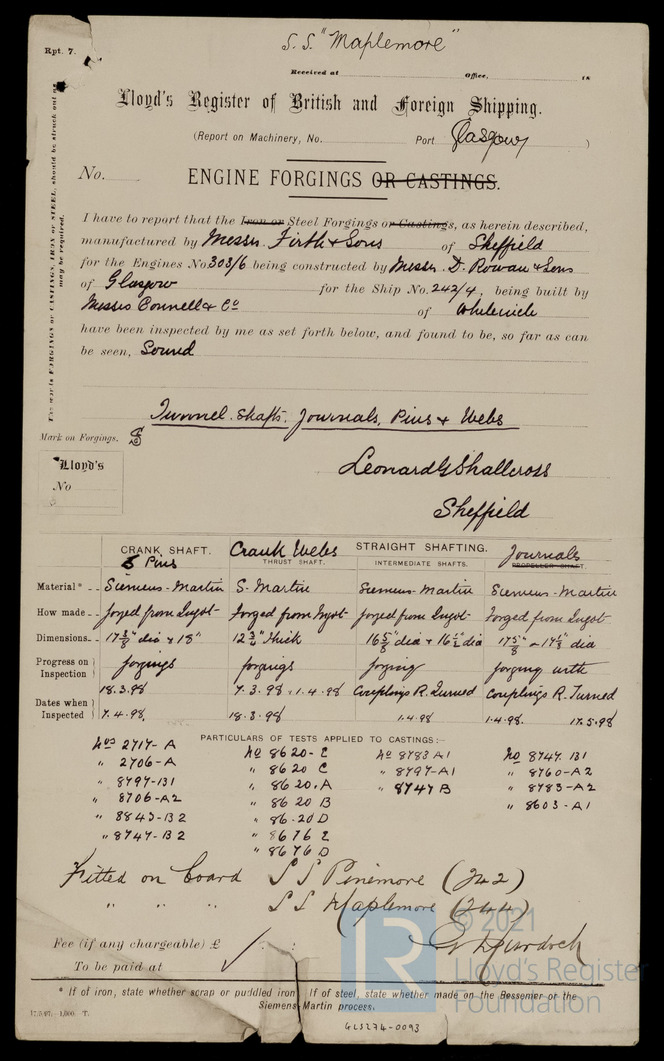 S.S. "Maplemore"
Rpt. 7.
Received at Office, 18
Lloyd's Register of British and Foreign Shipping.
(Report on Machinery, No. Port Glasgow )
No. ENGINE FORGINGS OR CASTINGS.
The words FORGINGS or CASTINGS, IRON or STEEL, should be struck out as may be required.
I have to report that the Iron or Steel Forgings or Castings, as herein described,
manufactured by Messrs. Firth & Sons of Sheffield
for the Engines No. 303/6 being constructed by Messrs. D. Rowan & Sons
of Glasgow for the Ship No. 242/4, being built by
Messrs Connell & Co of Whiteinch
have been inspected by me as set forth below, and found to be, so far as can
be seen, Sound
Tunnel Shafts, Journals, Pins & Webs
Mark on Forgings.
Lloyd's
No
Leonard G Shallcross
Sheffield
CRANK SHAFT. Crank Webs STRAIGHT SHAFTING. Journals
Pins THRUST SHAFT. INTERMEDIATE SHAFTS. PROPELLER SHAFT.
Material* Siemens-Martin S-Martin Siemens-Martin Siemens-Martin
How made forged from Ingot Forged from Ingot forged from Ingot Forged from Ingot
Dimensions 17 3/8" dia & 18" 12 3/4" thick 16 5/8" dia & 16 1/2" dia dia
Progress on Inspection forgings forgings forging forging with
Couplings R. Turned Couplings R. Turned
Dates when Inspected 18.3.98 7.3.98 1.4.98
7.4.98 18.3.98 1.4.98 1.4.98. 17.5.98
PARTICULARS OF TESTS APPLIED TO CASTINGS:—
Nos 2717-A No 8620-E No 8783 A1 No 8747. B1
" 2706-A " 8620 C " 8797-A1 " 8760-A2
" 8797-B1 " 8620.A " 8747 B " 8783-A2
" 8706-A2 " 8620 B " 8603-A1
" 8843-B2 " 8620 D
" 8747-B2 " 8676 E
" 8676 D
Fitted on board S S Pinemore (242)
" " " S S Maplemore (244)
G Murdoch
Fee (if any chargeable) £ : :
To be paid at
* If of iron, state whether scrap or puddled iron. If of steel, state whether made on the Bessemer or the
Siemens-Martin process.
GLS274-0093
LR
© 2021
Lloyd's Register
Foundation